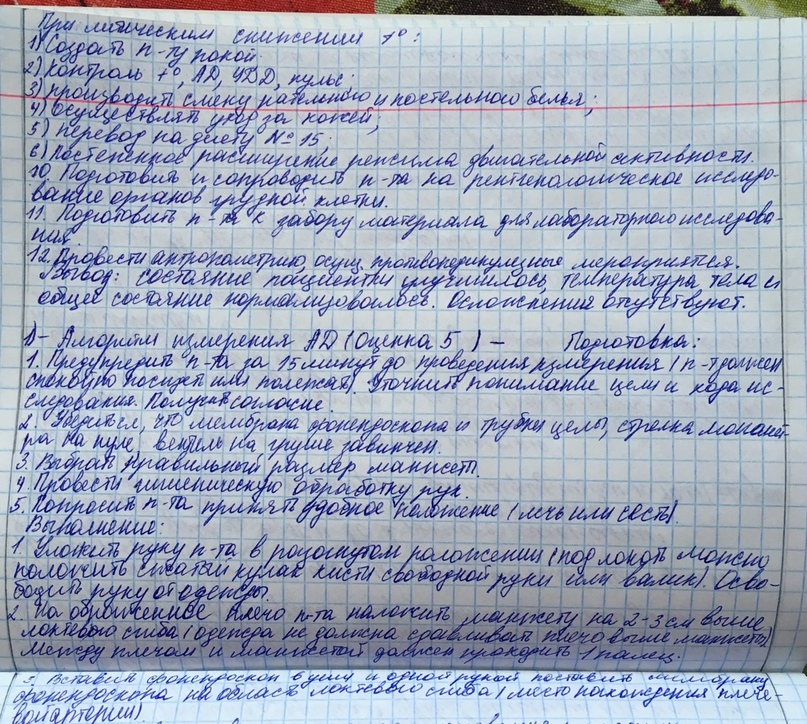 При литическом снижении t°:
1) Создать п-ту покой.
2) Контроль t°, АД, ЧДД, пульс;
3) производить смену нательного и постельного белья;
4) Осуществлять уход за кожей;
5) перевод на диету №15;
6) Постепенное расширение режима двигательной активности.
10. Подготовить и сопроводить п-та на рентгенологическое исследо-
вание органов грудной клетки.
11. Подготовить п-та к забору материала для лабораторного исследова-
ния.
12. Провести антропометрию, осущ. противопедикулезные мероприятия.
Вывод: состояние пациентки улучшилось, температура тела и
общее состояние нормализовалось. Осложнения отсутствуют.
Д- Алгоритм измерения АД (Оценка 5 ) – Подготовка:
1. Предупредить п-та за 15 минут до проведения измерения (п-т должен
спокойно посидеть или полежать). Уточнить понимание цели и хода ис-
следования. Получить согласие.
2. Убедиться, что мембрана фонендоскопа и трубки целы, стрелка маномет-
ра на нуле, вентиль на груше завинчен.
3. Выбрать правильный размер манжеты.
4. Провести гигиеническую обработку рук.
5. Попросить п-та принять удобное положение (лечь или сесть).
Выполнение:
1. Уложить руку п-та в разогнутом положении (под локоть можно
положить сжатый кулак кисти свободной руки или валик). Осво-
бодить руку от одежды.
2. На обнаженное плечо п-та наложить манжету на 2-3 см выше
локтевого сгиба (одежда не должна сдавливать плечо выше манжеты)
Между плечом и манжетой должен проходить 1 палец.
3. Вставить фонендоскоп в уши и одной рукой поставить мембрану
фонендоскопа на область локтевого сгиба (место нахождения плече-
вой артерии)